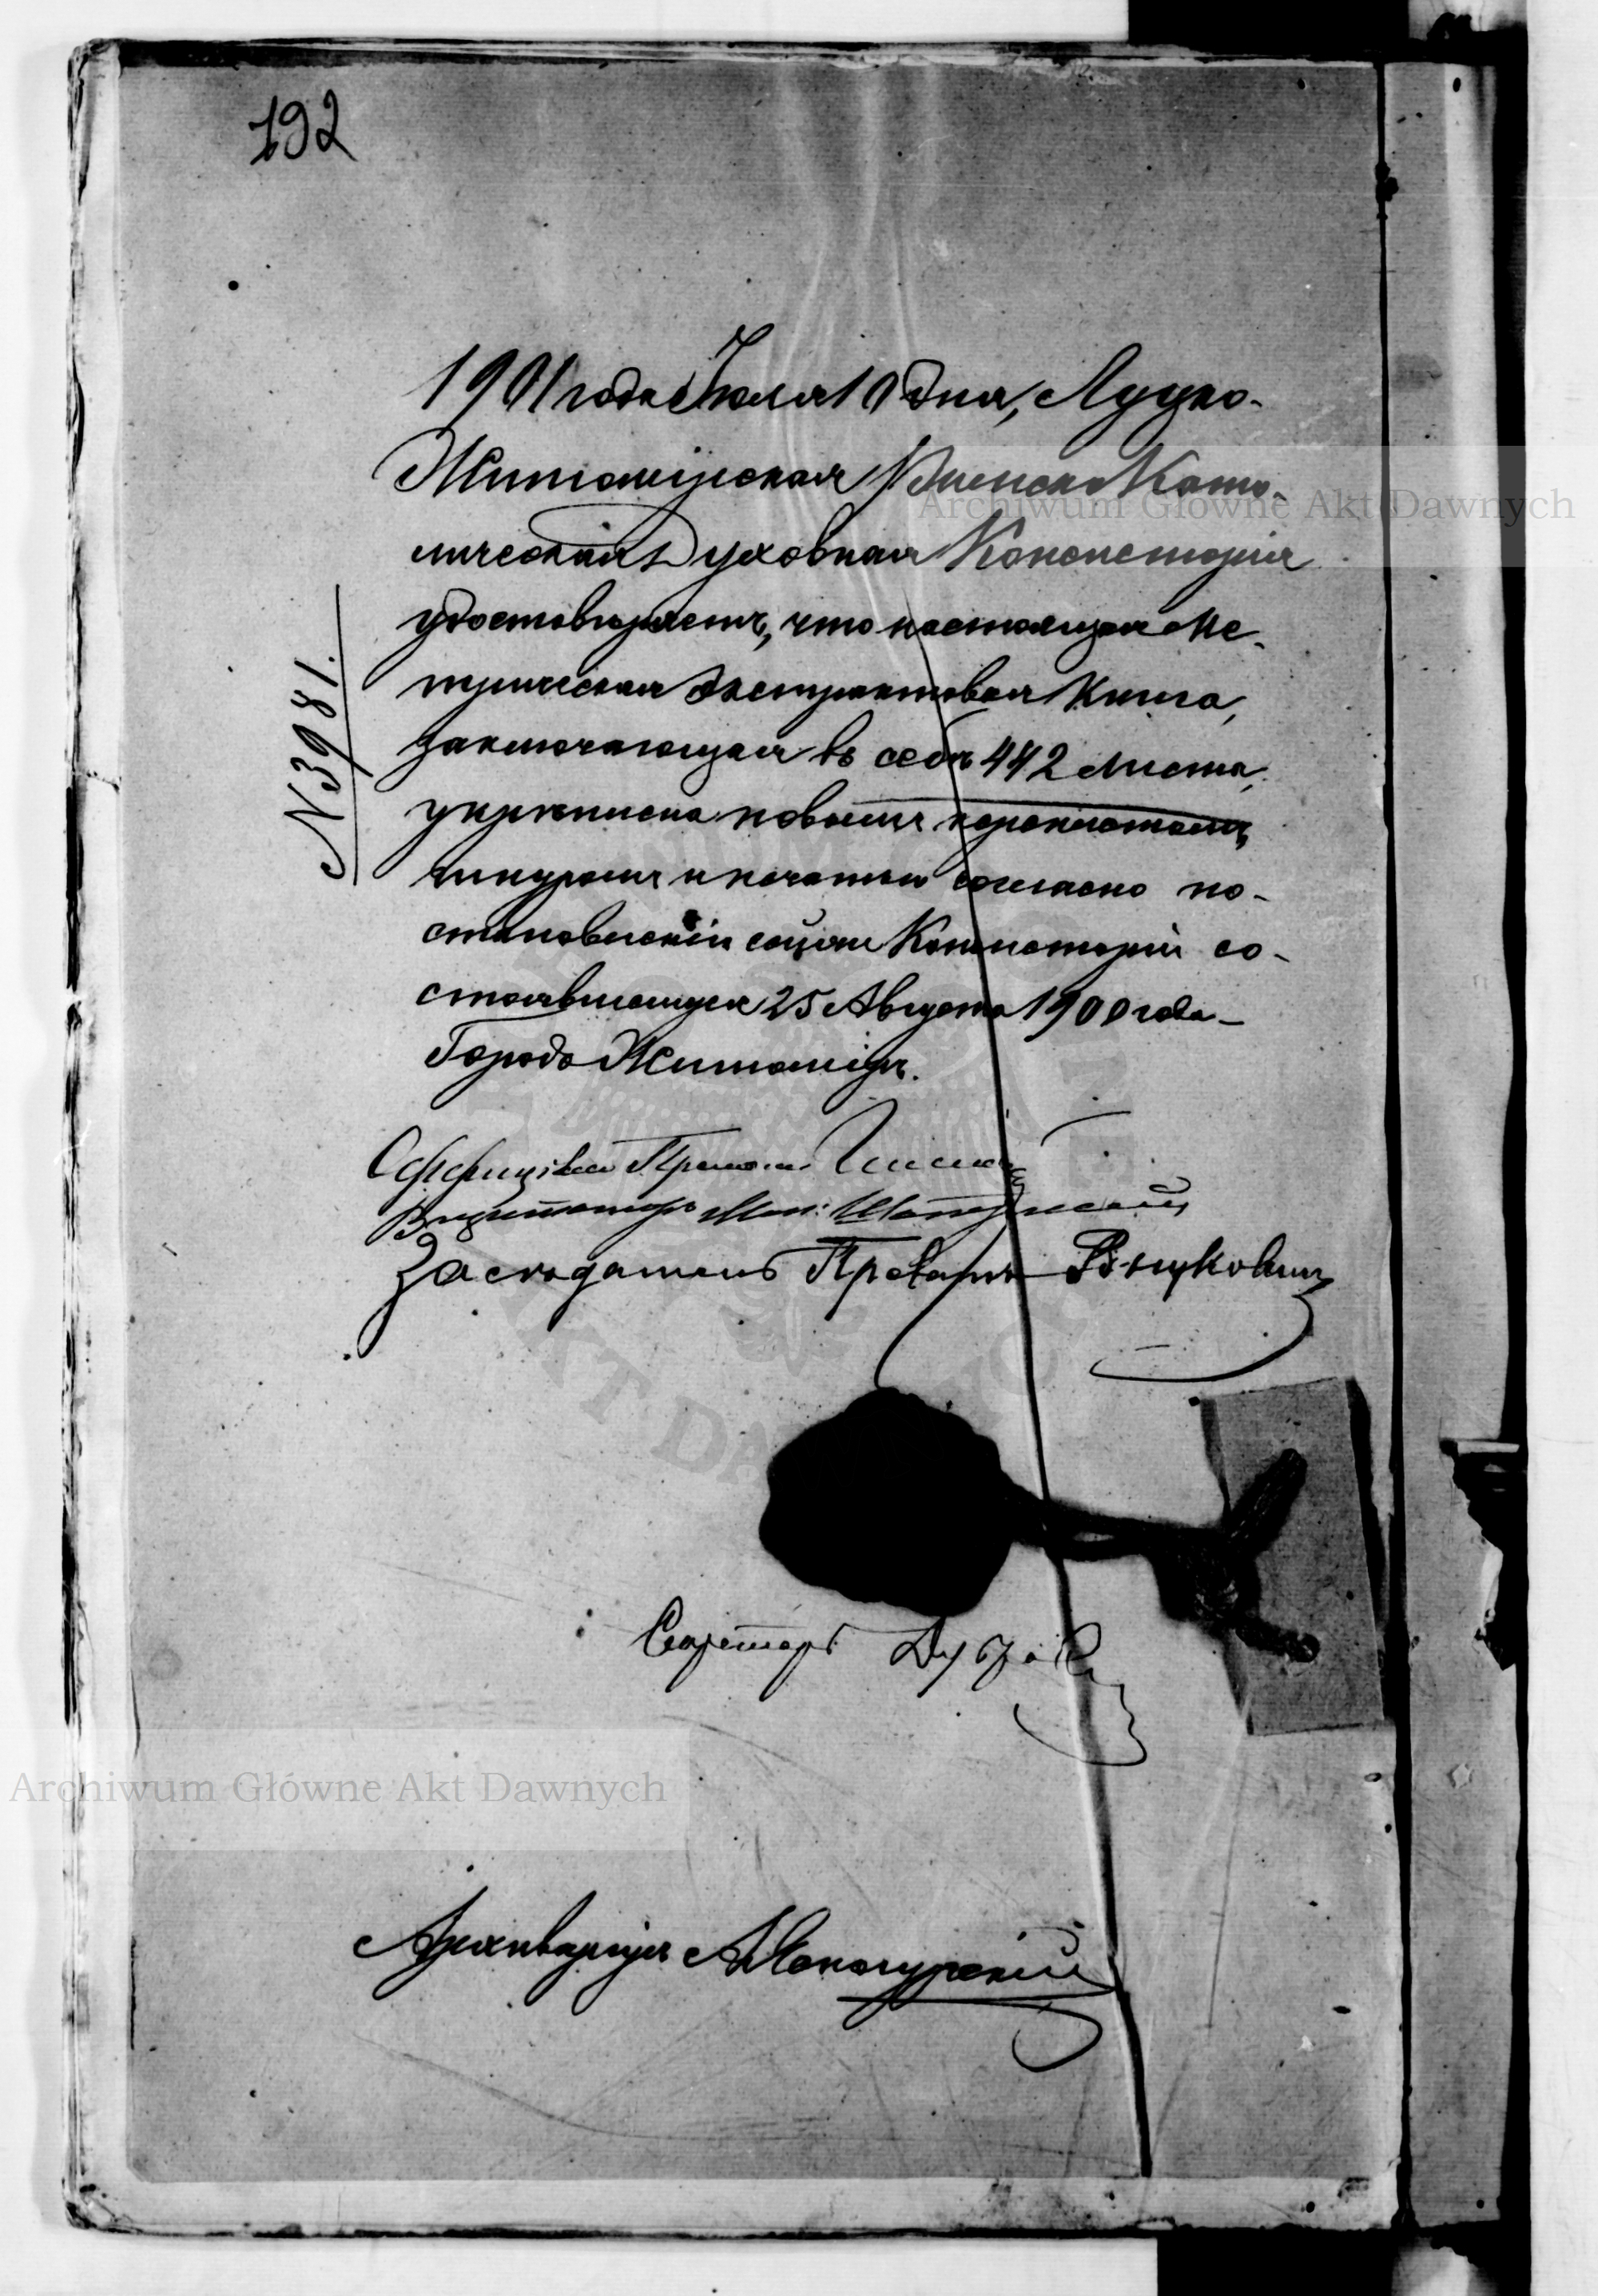 192
1901 года Іюля 10 дня, Луцко-
Житомірская Римско Като-
лическая Духовная Консисторія
удостовѣряетъ, что настоящая Ме-
трическая Экстрактовая Книга,
заключающая въ себѣ 442 листа,
укрѣплена новымъ переплетомъ,
шнуромъ и печатью согласно по-
становленія сей Консисторіи со-
стоявшагося 25 Августа 1900 года
Городъ Житоміръ.
N 3981.
Оффиціалъ Прелатъ
Визитаторъ
Засѣдатель Прелатъ
Секретарь
Архиваріусъ
Archiwum Główne Akt Dawnych
Archiwum Główne Akt Dawnych